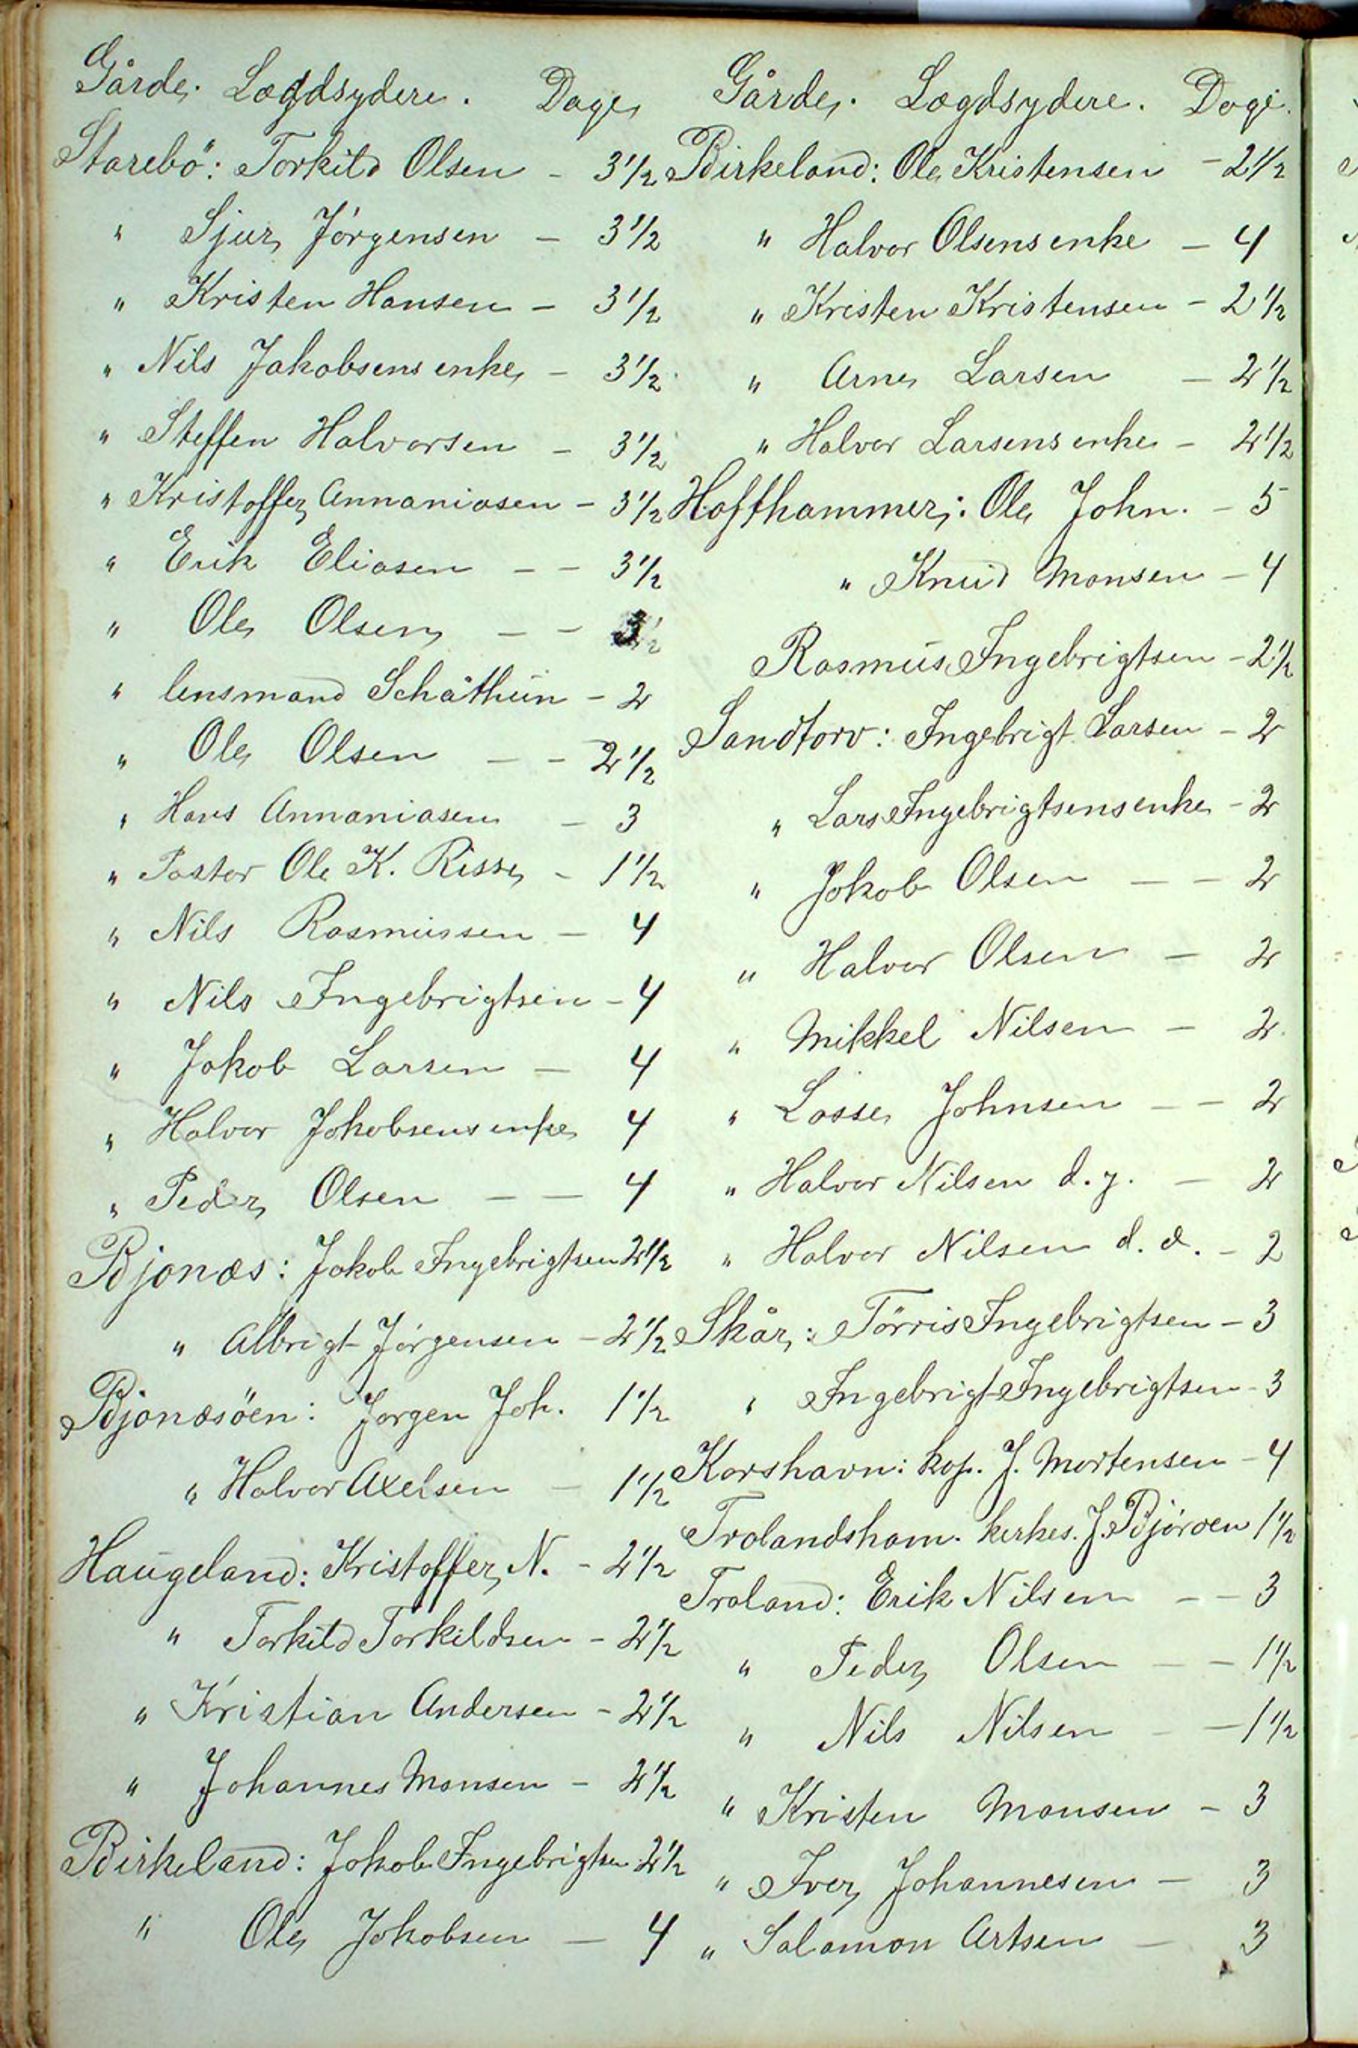 Gårde. Lægdsydere. Dage
Starebö: Torkild Olsen - 3 1/2
" Sjur Jörgensen - 3 1/2
" Kristen Hansen - 3 1/2
" Nils Jakobsens enke - 3 1/2
" Steffen Halvorsen - 3 1/2
" Kristoffer Annaniasen - 3 1/2
" Erik Eliasen - - 3 1/2
" Ole Olsen - - 3 1/2
" lensmand Schåthun - 2
" Ole Olsen - - 2 1/2
" Hans Annaniasen - 3
" Pastor Ole K. Risse - 1 1/2
" Nils Rasmussen - 4
" Nils Ingebrigtsen - 4
" Jakob Larsen - 4
" Halvor Jakobsens enke 4
" Peder Olsen - - 4
Bjonæs: Jakob Ingebrigtsen 2 1/2
" Albrigt Jörgensen - 2 1/2
Bjonæsöen: Jørgen Joh. 1 1/2
" Halvor Axelsen - 1 1/2
Haugeland: Kristoffer N. - 2 1/2
" Torkild Torkildsen - 2 1/2
" Kristian Andersen - 2 1/2
" Johannes Monsen - 2 1/2
Birkeland: Jakob Ingebrigtsen 2 1/2
" Ole Jakobsen - 4
Gårde. Lægdsydere. Dage.
Birkeland: Ole Kristensen - 2 1/2
" Halvor Olsens enke - 4
" Kristen Kristensen - 2 1/2
" Arne Larsen - 2 1/2
" Halvor Larsens enke - 2 1/2
Hoffhammer: Ole John. - 5
" Knud Monsen - 4
Rasmus Ingebrigtsen - 2 1/2
Sandtorv: Ingebrigt Larsen - 2
" Lars Ingebrigtsens enke - 2
" Jakob Olsen - - 2
" Halvor Olsen - 2
" Mikkel Nilsen - 2
" Lasse Johnsen - - 2
" Halvor Nilsen d. y. - 2
" Halvor Nilsen d. æ. - 2
Skår: Törris Ingebrigtsen - 3
" Ingebrigt Ingebrigtsen - 3
Korshavn: kop. J. Mortensen - 4
Trolandsham. kirkes. J. Björøen 1 1/2
Troland: Erik Nilsen - - 3
" Peder Olsen - - 1 1/2
" Nils Nilsen - - 1 1/2
" Kristen Monsen - 3
" Iver Johannesen - 3
" Salamon Artsen - 3